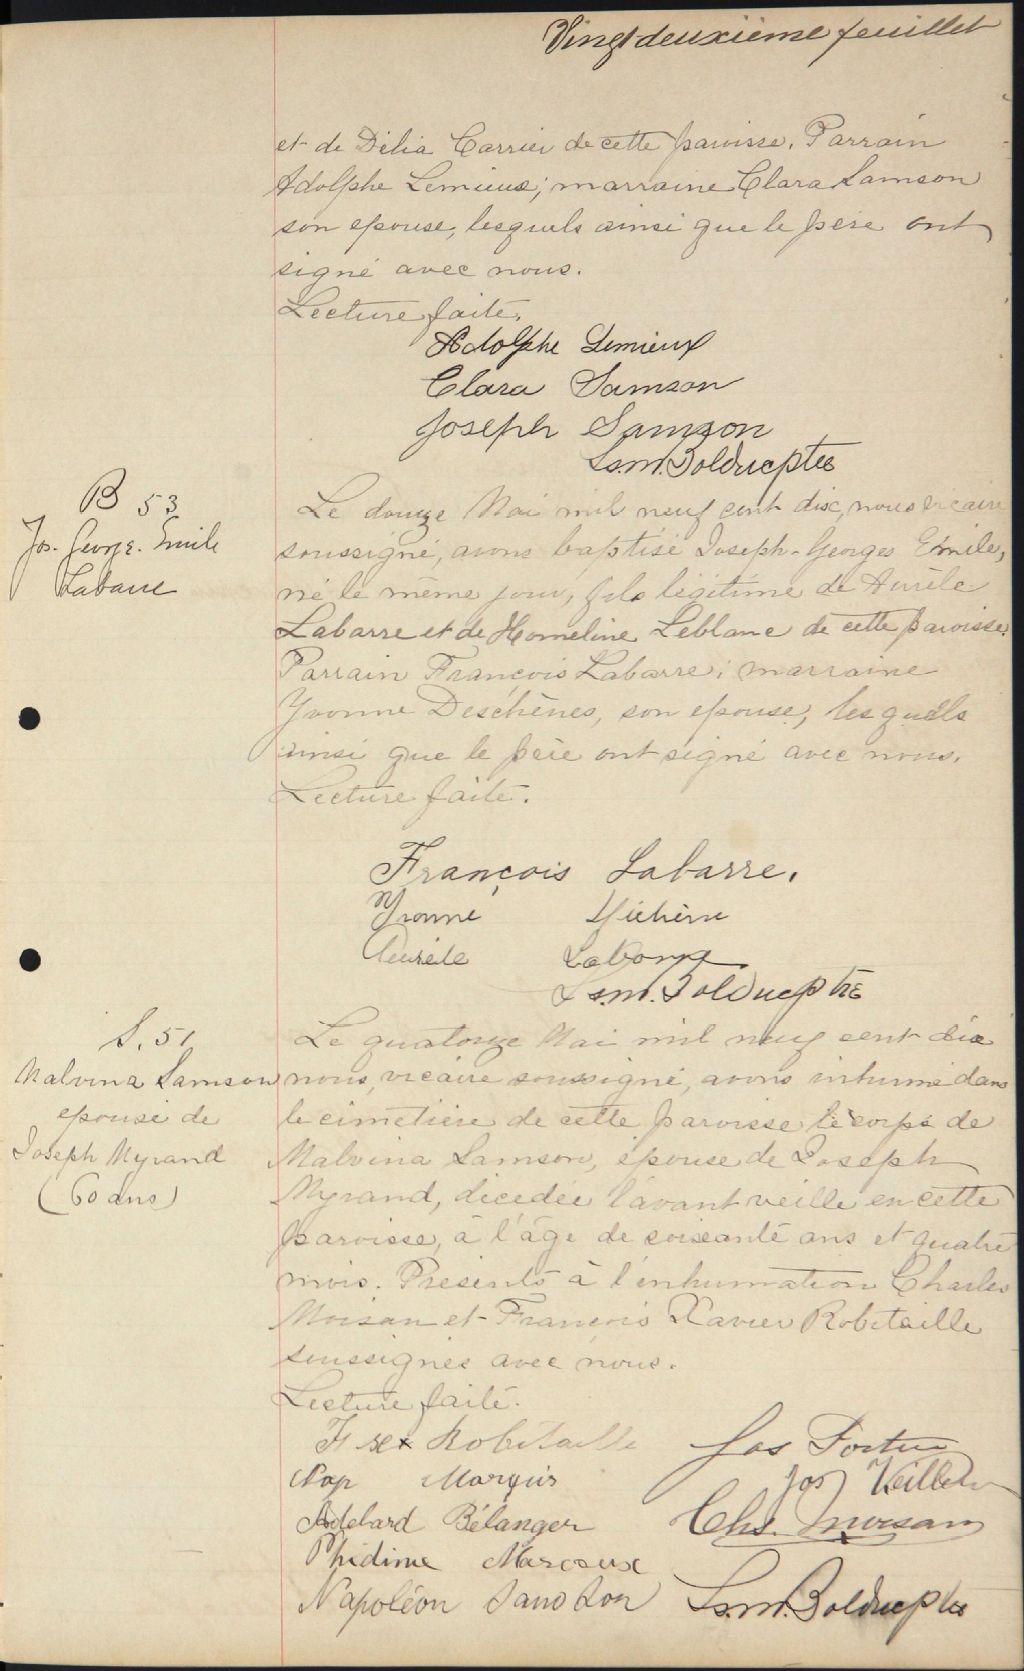 Vingt deuxième feuillet
et de Délia Carrier de cette paroisse. Parrain
Adolphe Lemieux; marraine Clara Samson
son epouse, lesquels ainsi que le père ont
signé avec nous.
Lecture faite.
Adolphe Lemieux
Clara Samson
Joseph Samson
Ls. M. Bolduc ptre
B 53
Jos. George. Emile
Labarre
Le douze Mai mil neuf cent dix, nous vicaire
soussigné, avons baptisé Joseph-Georges Emile,
né le même jour, fils légitime de Aurèle
Labarre et de Homeline Leblanc de cette paroisse.
Parrain François Labarre; marraine
Yvonne Deschênes, son epouse, lesquels
ainsi que le père ont signé avec nous.
Lecture faite.
François Labarre.
Yvonne
Aurèle Labarre
Ls. M. Bolduc ptre
S. 51
Malvina Samson
epouse de
Joseph Myrand
(60 ans)
Le quatorze Mai mil neuf cent dix
nous, vicaire soussigné, avons inhumé dans
le cimetière de cette paroisse le corps de
Malvina Samson, épouse de Joseph
Myrand, décédée l'avant veille en cette
paroisse, à l'âge de soixante ans et quatre
mois. Présents à l'inhumation Charles
Moisan et François Xavier Robitaille
soussignés avec nous.
Lecture faite.
F xer Robitaille Jos Fortier
Nap Marquis Jos Veillet
Adelard Bélanger Chs. Moisan
Phidime Marcoux
Napoléon Ls. M. Bolduc ptre